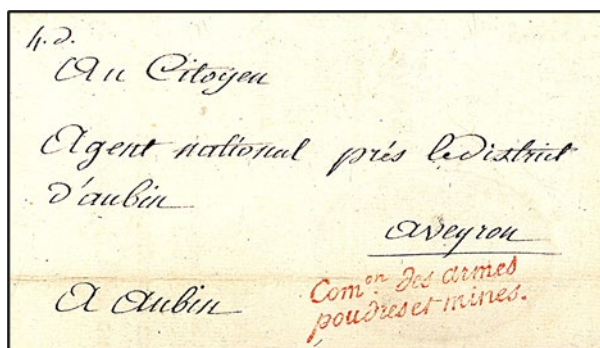 h. d.
Au Citoyen
Agent national près le district
d'aubin
aveyron
A aubin
Com.on des armes
poudres et mines.